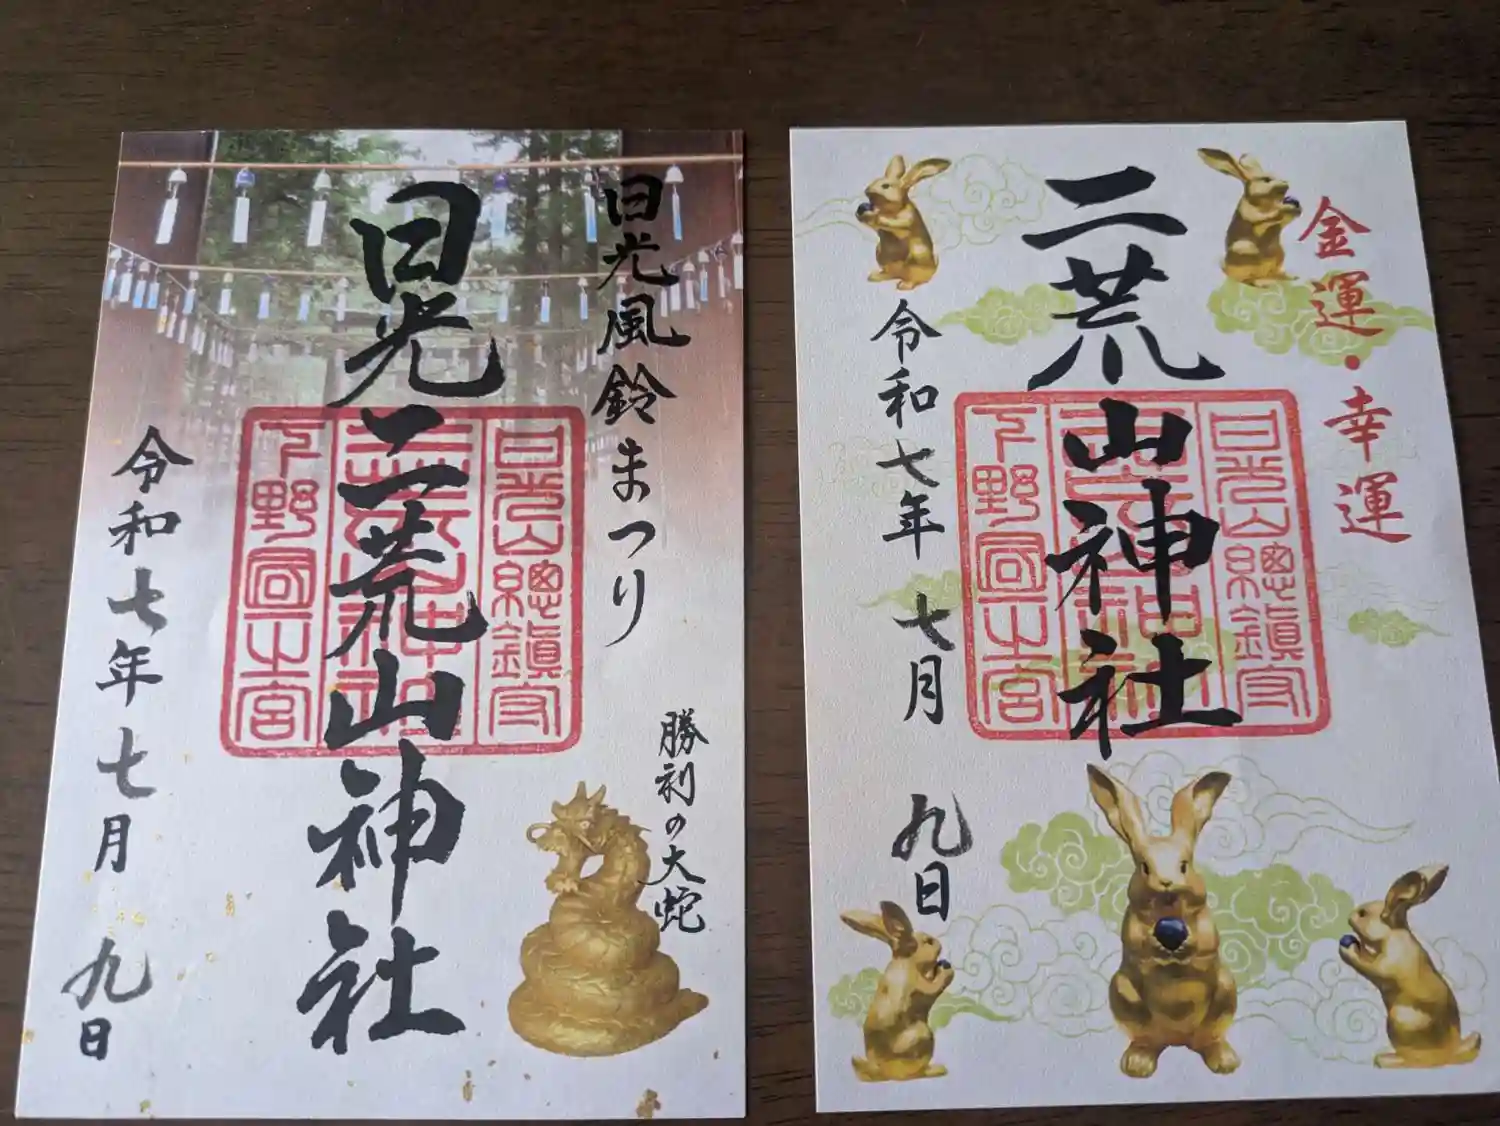 日光風鈴まつり
日光二荒山神社
日光山總鎮守
二荒山神社
下野國一之宮
勝利の大蛇
令和七年七月九日
金運・幸運
二荒山神社
日光山總鎮守
二荒山神社
下野國一之宮
令和七年七月九日